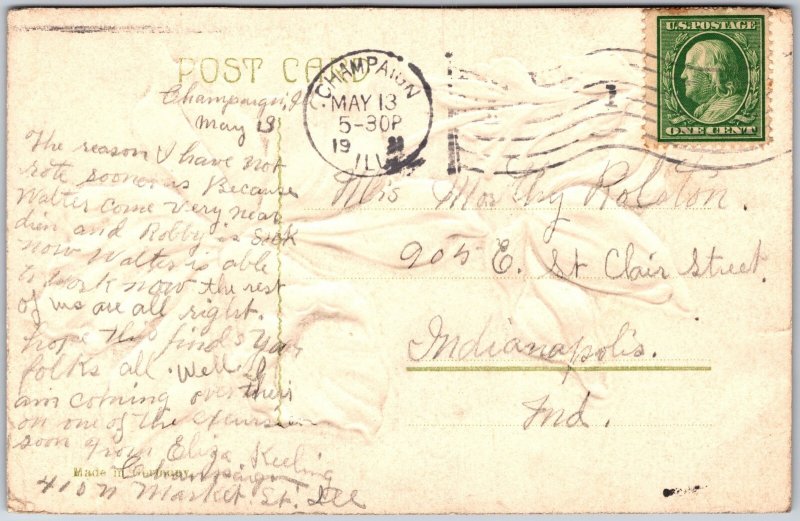 POST CARD
U.S. POSTAGE
ONE CENT
CHAMPAIGN
MAY 13
5-30P
19
ILL
1
Champaign, Ill
May 13
The reason I have not
rote sooner is Because
Walter come very near
dien and Robby is sick
now Walter is able
to work now the rest
of us are all right.
hope this finds you
folks all well. I
am coming over their
on one of the excursion
soon from Eliza Keeling
Champaign
410 N Market St. Ill
Made in Germany
Mis Morthy Rolston.
905 E. St Clair Street.
Indianapolis.
Ind.